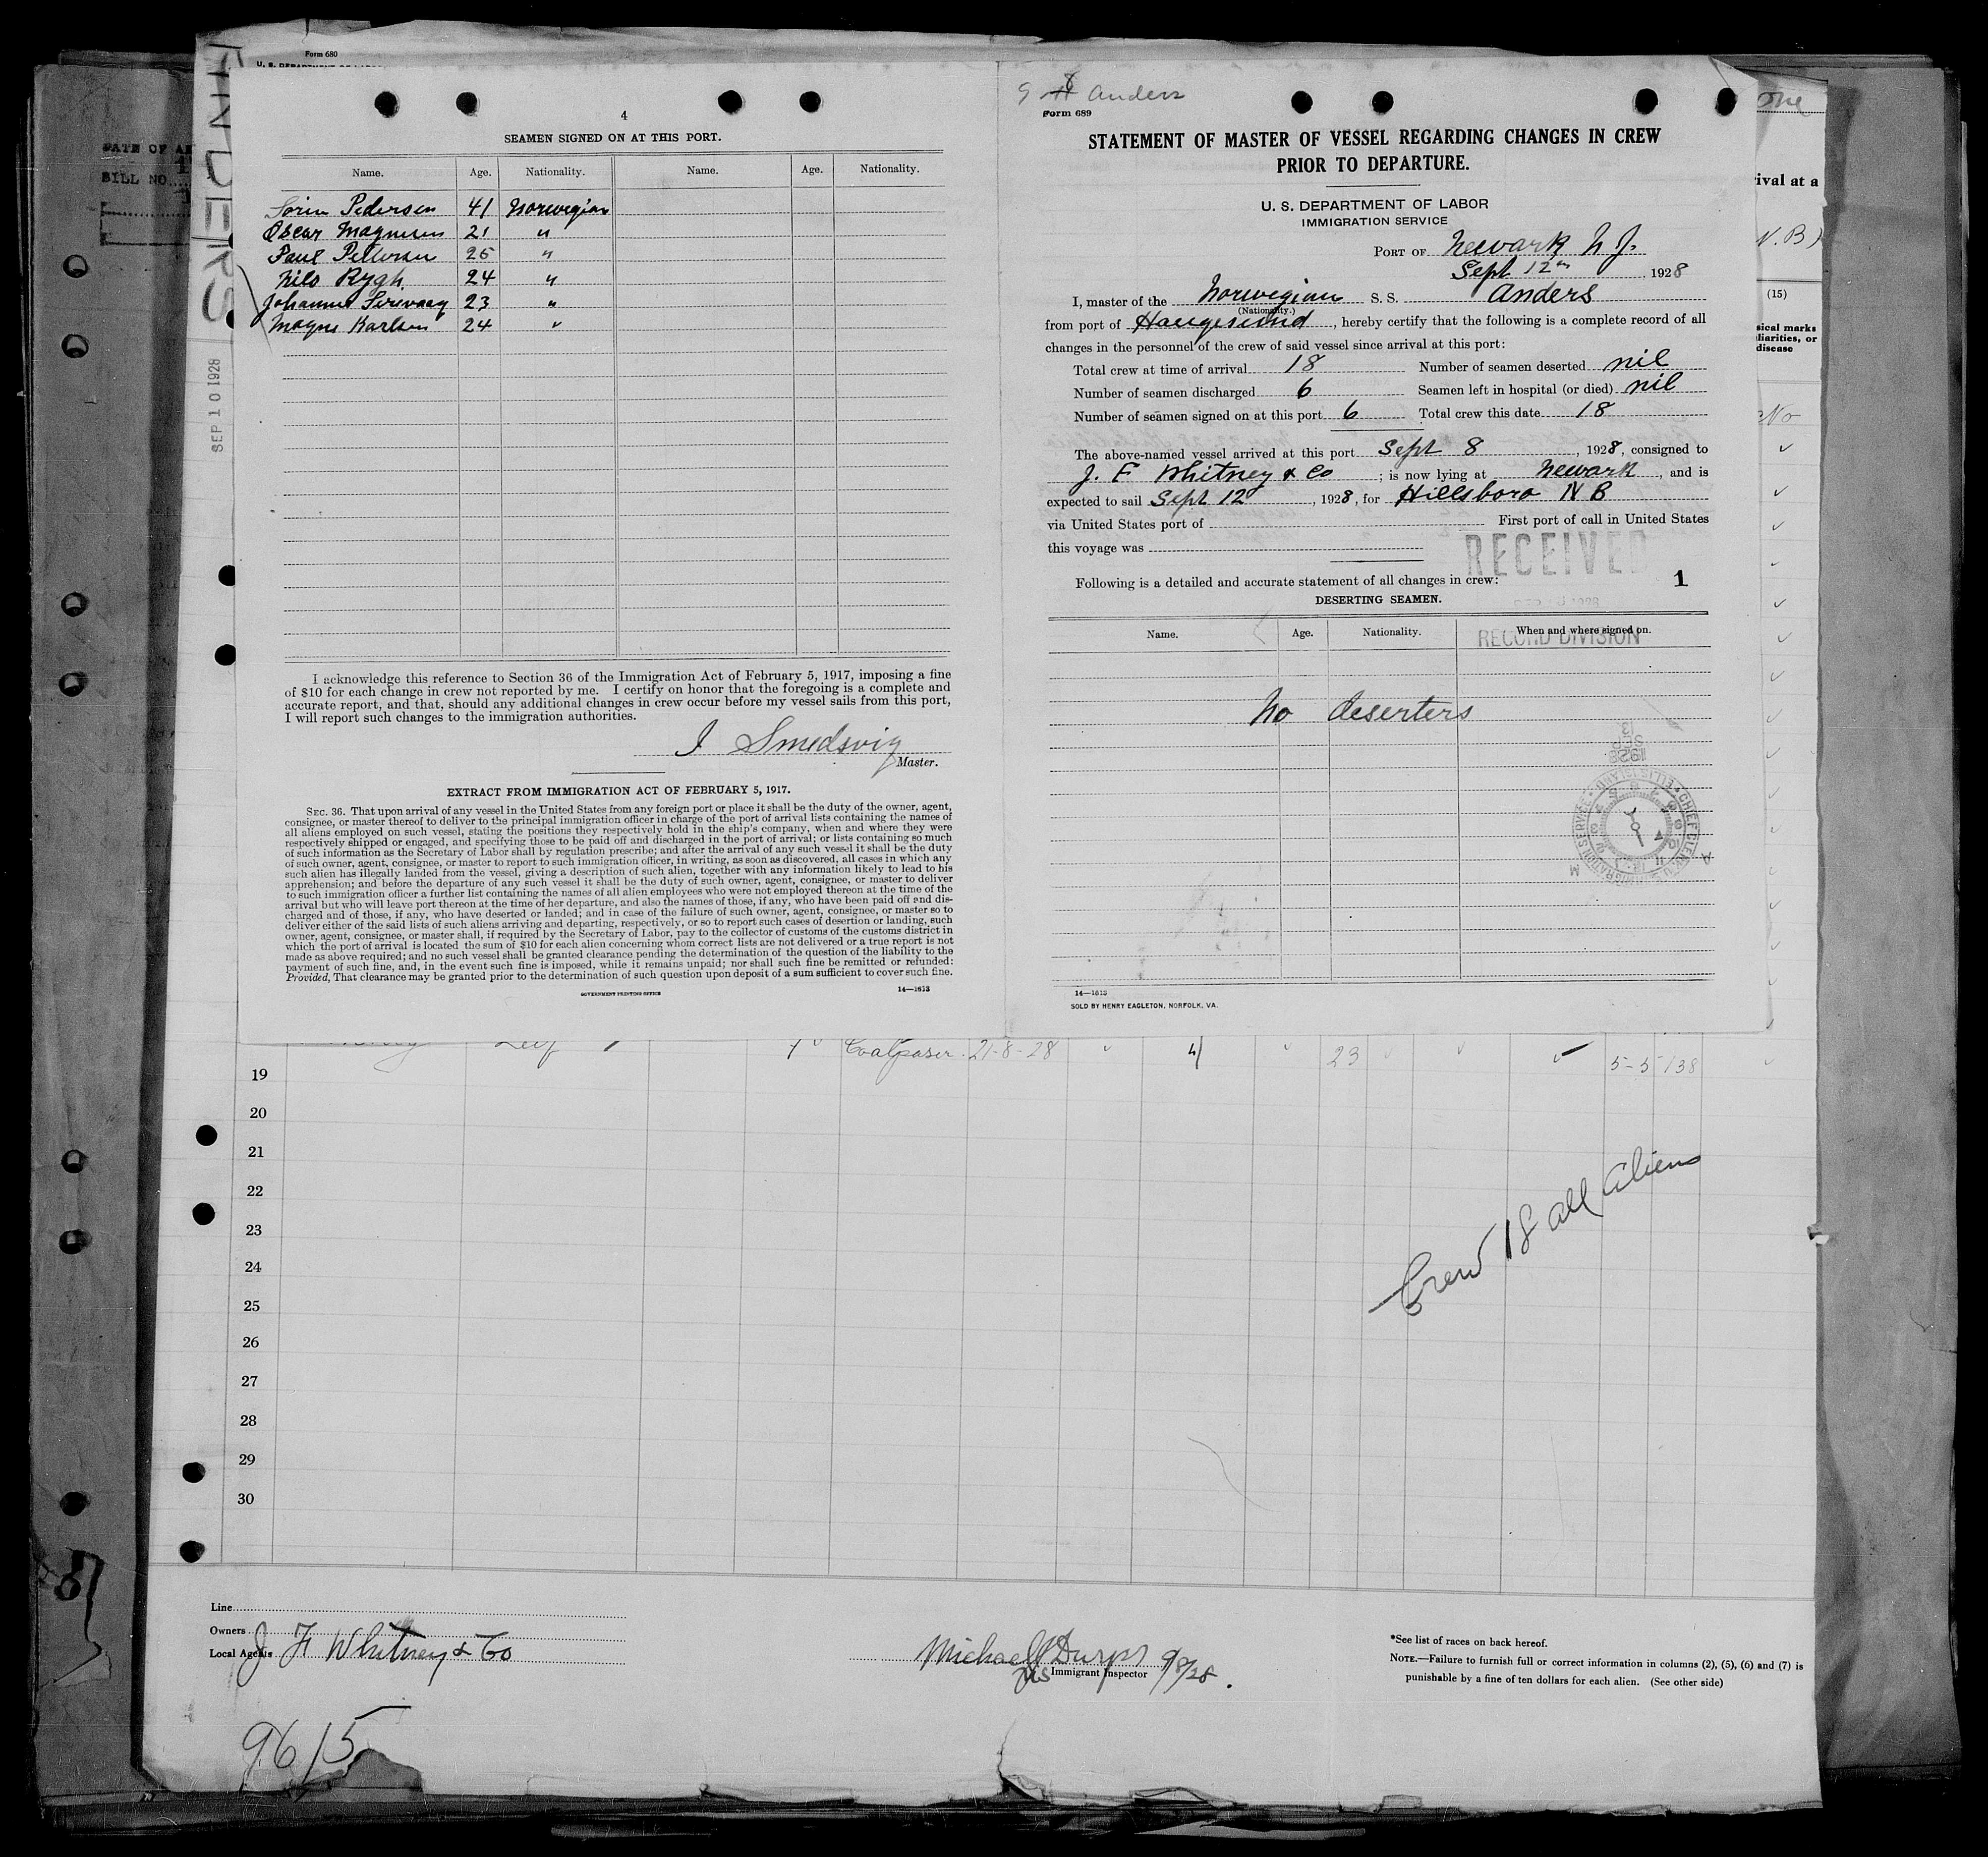 Form 680
ANDERS
SEP 10 1928
DATE OF
BILL NO.
4
SEAMEN SIGNED ON AT THIS PORT.
Name. Age. Nationality. Name. Age. Nationality.
Sorin Pedersen 41 Norwegian
Oscar Magnusen 21 "
Paul Pettersen 25 "
Nils Rygh. 24 "
Johannes 23 "
Magne Karlsen 24 "
I acknowledge this reference to Section 36 of the Immigration Act of February 5, 1917, imposing a fine
of $10 for each change in crew not reported by me. I certify on honor that the foregoing is a complete and
accurate report, and that, should any additional changes in crew occur before my vessel sails from this port,
I will report such changes to the immigration authorities.
I Smedsvig
Master.
EXTRACT FROM IMMIGRATION ACT OF FEBRUARY 5, 1917.
SEC. 36. That upon arrival of any vessel in the United States from any foreign port or place it shall be the duty of the owner, agent,
consignee, or master thereof to deliver to the principal immigration officer in charge of the port of arrival lists containing the names of
all aliens employed on such vessel, stating the positions they respectively hold in the ship's company, when and where they were
respectively shipped or engaged, and specifying those to be paid off and discharged in the port of arrival; or lists containing so much
of such information as the Secretary of Labor shall by regulation prescribe; and after the arrival of any such vessel it shall be the duty
of such owner, agent, consignee, or master to report to such immigration officer, in writing, as soon as discovered, all cases in which any
such alien has illegally landed from the vessel, giving a description of such alien, together with any information likely to lead to his
apprehension; and before the departure of any such vessel it shall be the duty of such owner, agent, consignee, or master to deliver
to such immigration officer a further list containing the names of all alien employees who were not employed thereon at the time of the
arrival but who will leave port thereon at the time of her departure, and also the names of those, if any, who have been paid off and dis-
charged and of those, if any, who have deserted or landed; and in case of the failure of such owner, agent, consignee, or master so to
deliver either of the said lists of such aliens arriving and departing, respectively, or so to report such cases of desertion or landing, such
owner, agent, consignee, or master shall, if required by the Secretary of Labor, pay to the collector of customs of the customs district in
which the port of arrival is located the sum of $10 for each alien concerning whom correct lists are not delivered or a true report is not
made as above required; and no such vessel shall be granted clearance pending the determination of the question of the liability to the
payment of such fine, and, in the event such fine is imposed, while it remains unpaid; nor shall such fine be remitted or refunded:
Provided, That clearance may be granted prior to the determination of such question upon deposit of a sum sufficient to cover such fine.
GOVERNMENT PRINTING OFFICE 14—1613
Anders
Form 689
STATEMENT OF MASTER OF VESSEL REGARDING CHANGES IN CREW
PRIOR TO DEPARTURE.
U. S. DEPARTMENT OF LABOR
IMMIGRATION SERVICE
PORT OF Newark N J.
Sept 12th, 1928
I, master of the Norwegian S. S. Anders
(Nationality.)
from port of Haugesund, hereby certify that the following is a complete record of all
changes in the personnel of the crew of said vessel since arrival at this port:
Total crew at time of arrival 18 Number of seamen deserted nil
Number of seamen discharged 6 Seamen left in hospital (or died) nil
Number of seamen signed on at this port 6 Total crew this date 18
The above-named vessel arrived at this port Sept 8, 1928, consigned to
J. F Whitney & Co; is now lying at Newark, and is
expected to sail Sept 12, 1928, for Hillsboro N B
via United States port of First port of call in United States
this voyage was
RECEIVED
Following is a detailed and accurate statement of all changes in crew: 1
DESERTING SEAMEN.
Name. Age. Nationality. When and where signed on.
RECORD DIVISION
No deserters
1928
SEP
13
14—1613
SOLD BY HENRY EAGLETON, NORFOLK, VA.
ival at a
N.B)
(15)
sical marks
liarities, or
disease
No
Leif Coalpaser 21-8-28 23 5-5 138
19
20
21
22
23
24
25
26
27
28
29
30
Crew 18 all Aliens
Line
Owners
Local Agents J F Whitney & Co
Michael
Immigrant Inspector 9/8/28.
*See list of races on back hereof.
NOTE.—Failure to furnish full or correct information in columns (2), (5), (6) and (7) is
punishable by a fine of ten dollars for each alien. (See other side)
9615